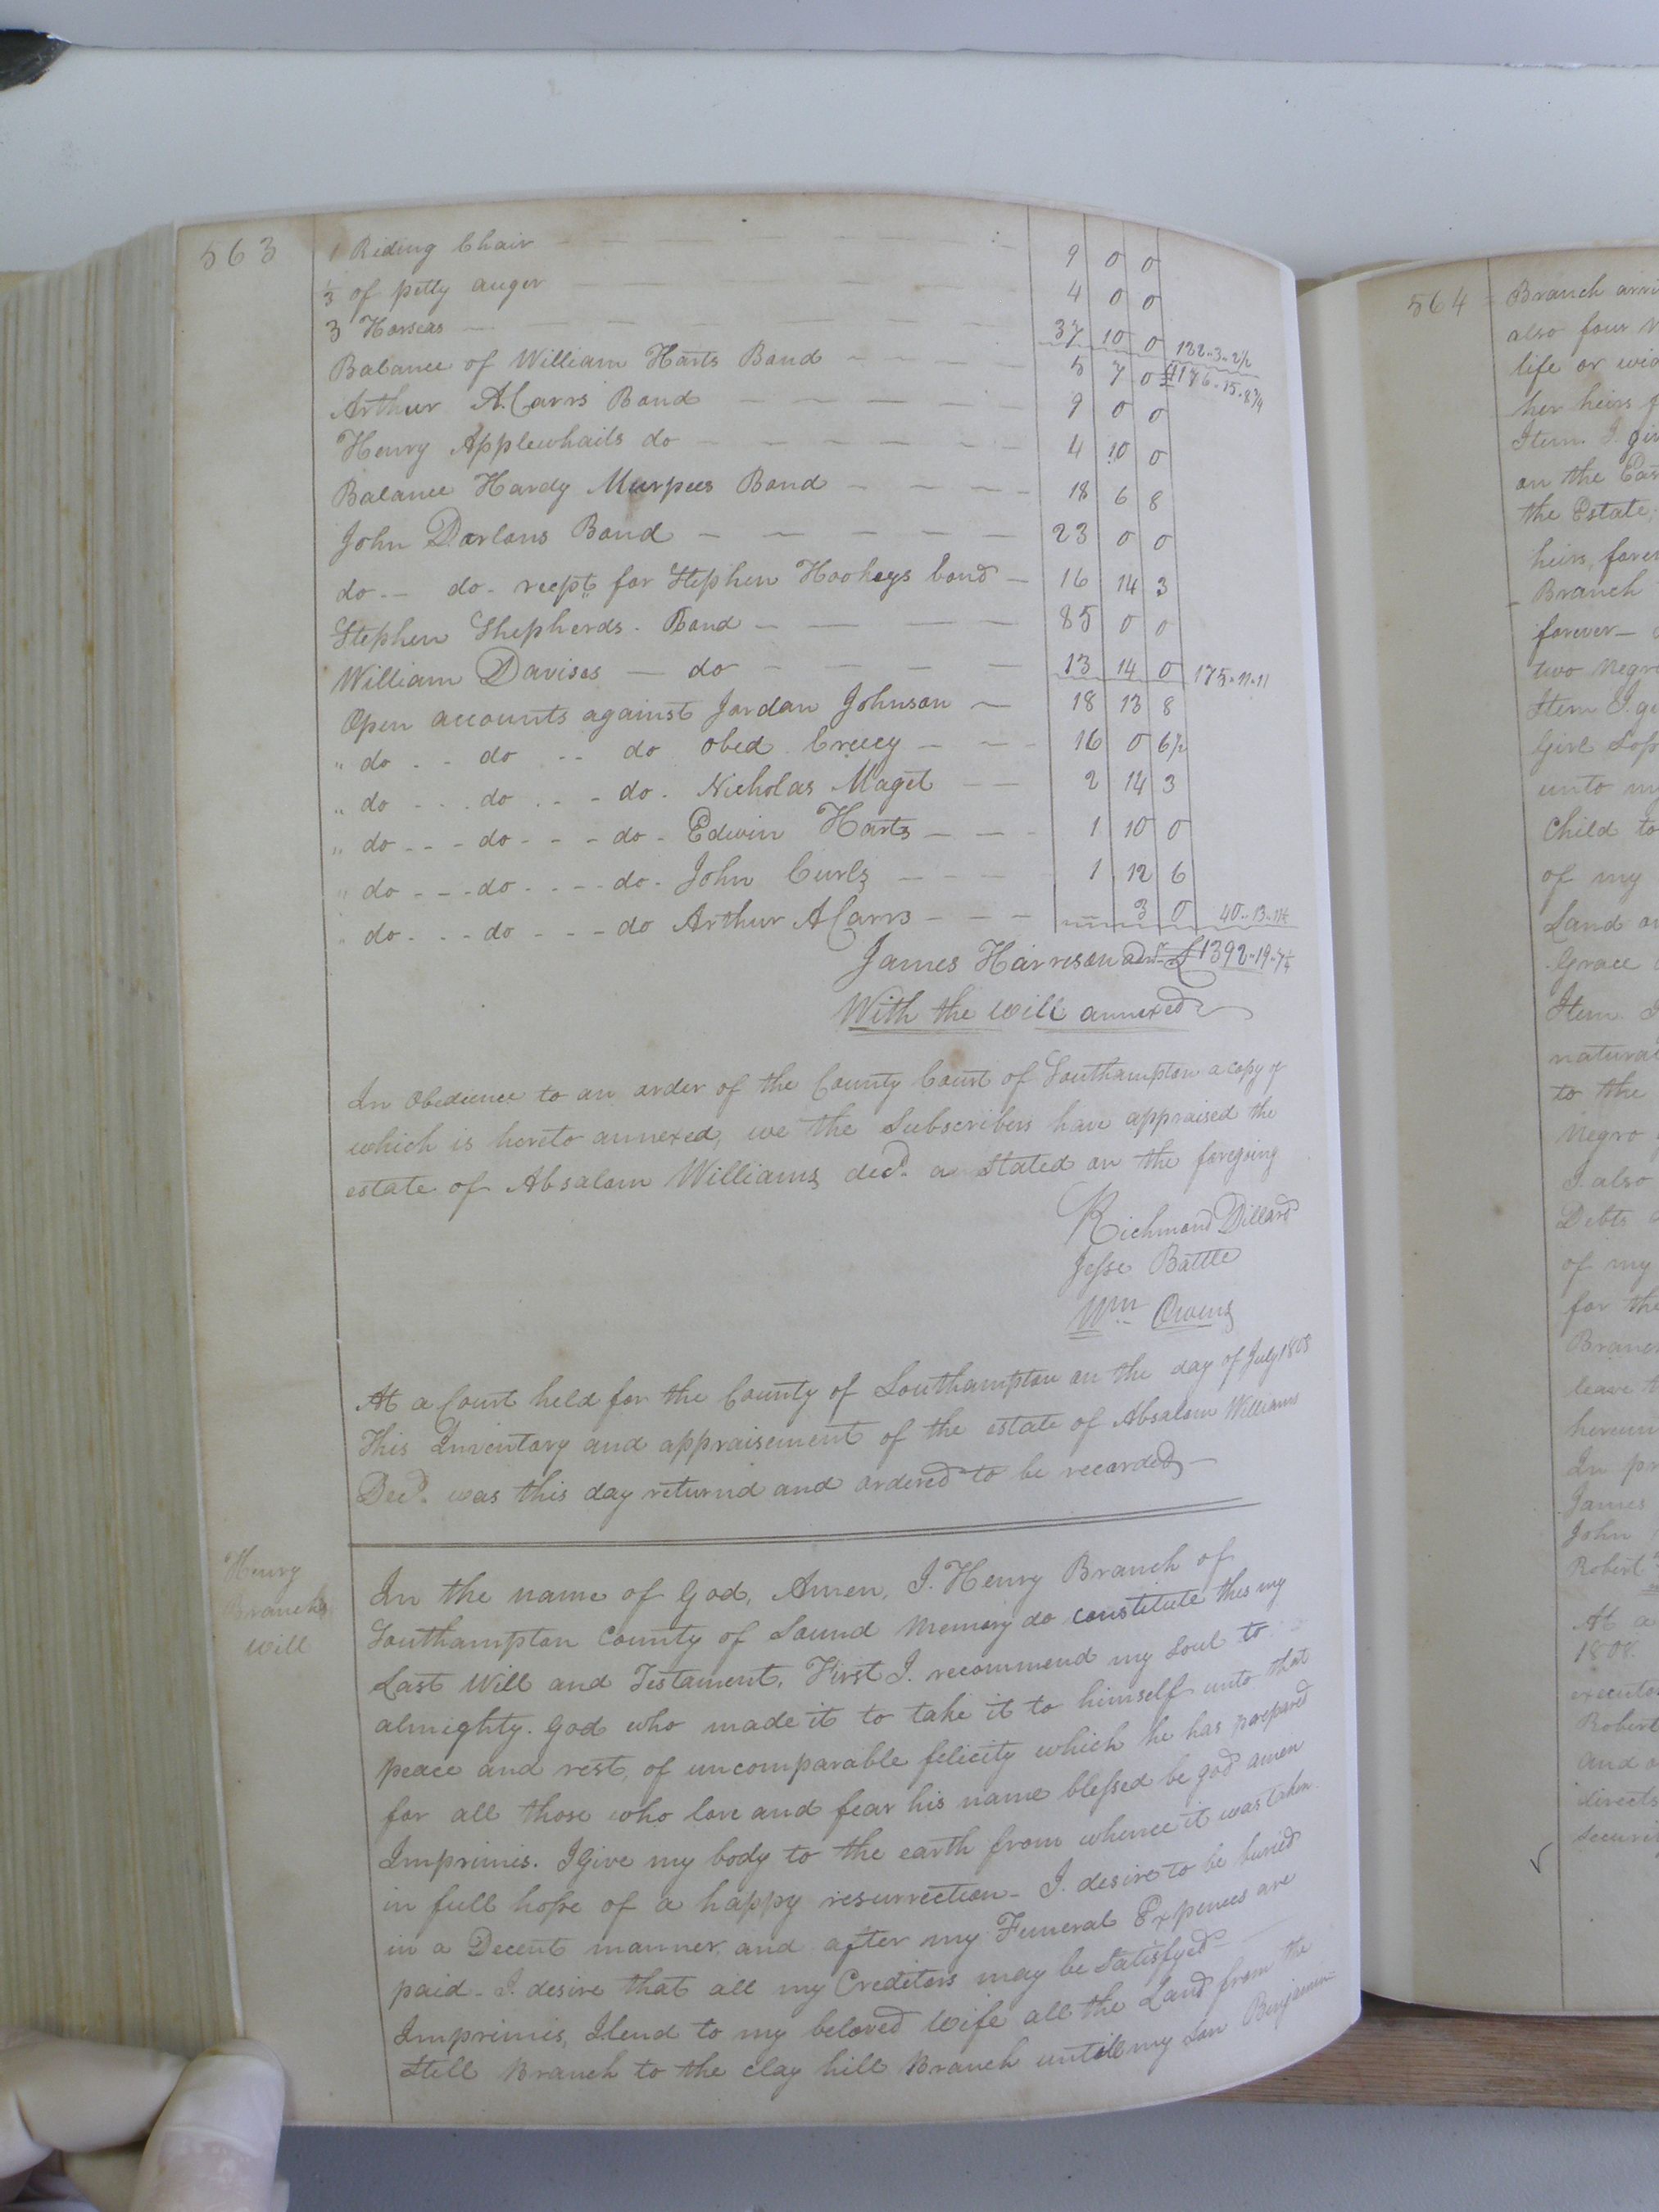 563
1 Riding Chair 9 0 0
1/3 of petty auger 4 0 0
3 Horseas 37 10 0 132-3-2½
Balance of William Harts Bond 5 7 0 £1176-15-8¾
Arthur A. Carrs Bond 9 0 0
Henry Applewhaits do 4 10 0
Balance Hardy Murpees Bond 18 6 8
John Darlans Bond 23 0 0
do -- do - recpt for Stephen Hookeys bond 16 14 3
Stephen Shepherds. Bond 85 0 0
William Davises - do 13 14 0 175-11-11
Open accounts against Jordan Johnson 18 13 8
" do - - do - - do Obed Creecy 16 0 6½
" do - - do - - do. Nicholas Maget 2 14 3
" do - - do - - do - Edwin Harts 1 10 0
" do - - do - - do - John Curls 1 12 6
" do - - do - - do Arthur A Carrs 3 0 40-13-11½
James Harrison admr £1392-19-7¼
With the will annexed
In Obedience to an order of the County Court of Southampton a copy of
which is hereto annexed, we the Subscribers have appraised the
estate of Absalom Williams decd. as Stated on the foregoing
Richmond Dillard
Jesse Battle
Wm Owens
At a Court held for the County of Southampton on the day of July 1808
This Inventory and appraisement of the estate of Absalom Williams
Decd. was this day returnd and ordered to be recorded
Henry
Branchs
Will
In the name of God, Amen, I. Henry Branch of
Southampton County of Sound Memory do constitute this my
Last Will and Testament, First I. recommend my Soul to
almighty. God who made it to take it to himself unto that
peace and rest, of uncomparable felicity which he has prepared
for all those who love and fear his name blessed be god amen
Imprimis. I Give my body to the earth from whence it was taken
in full hope of a happy resurrection - I. desire to be buried
in a Decent manner, and after my Funeral Expences are
paid - I. desire that all my Creditors may be Satisfyed -
Imprimis, I lend to my beloved Wife all the Land from the
Still Branch to the clay hill Branch untill my Son Benjamin
564
Branch
also four
life or
her heirs
Item. I.
on the
the Estate
heirs, forever
Branch
forever -
two Negro
Item I.
Girl
unto my
Child to
of my
Land
Grace
Item. I
natural
to the
Negro
I. also
Debts
of my
for the
Branch
leave
In
James
John
Robert
At a
1808.
Robert
and